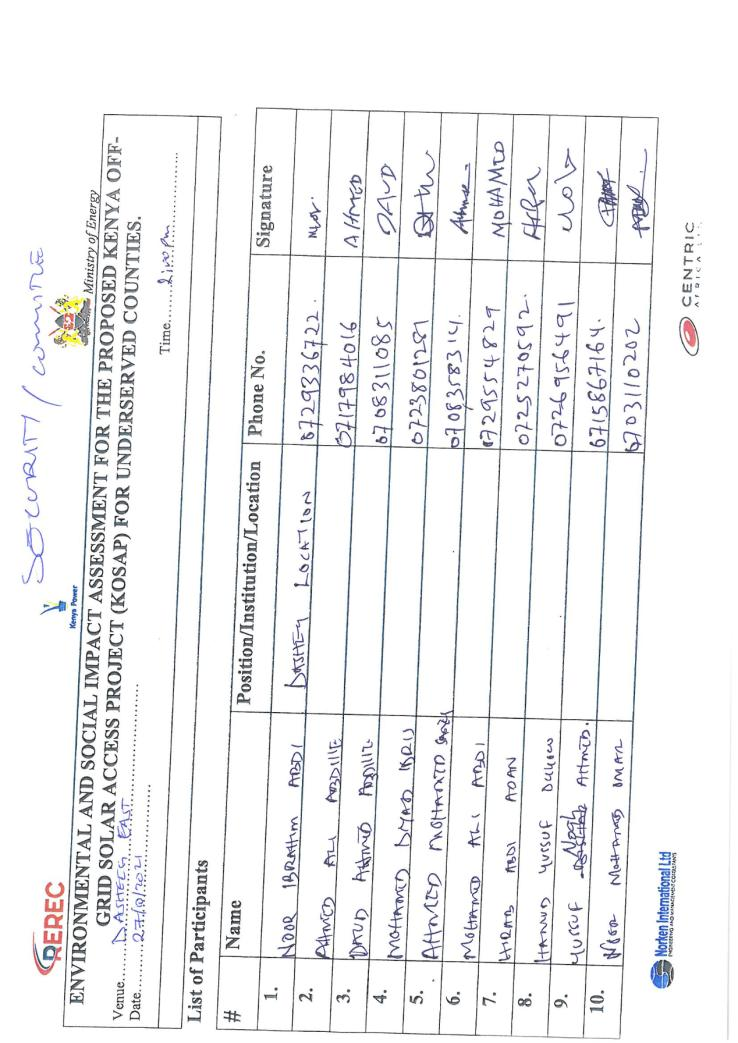 SECURITY / COMMITTEE
REREC
Kenya Power
Ministry of Energy
ENVIRONMENTAL AND SOCIAL IMPACT ASSESSMENT FOR THE PROPOSED KENYA OFF-
GRID SOLAR ACCESS PROJECT (KOSAP) FOR UNDERSERVED COUNTIES.
Venue DASHEEG EAST
Date Time 2:00 Pm
List of Participants
# Name Position/Institution/Location Phone No. Signature
1. NOOR IBRAHIM ABDI DASHEEG LOCATION 0729336722. Noor
2. AHMED ALI ABDILLE 0717984016 AHMED
3. DAUD AHMED ABDILLE 0708311085 DAUD
4. MOHAMED IDRIS 0723801281
5. AHMED MOHAMED 0708358314.
6. MOHAMED ALI ABDI 0729554829 MOHAMED
7. HIRAB ABDI ADAN 0725270592.
8. YUSUF 0726956491
9. YUSSUF AHMED. 0715867164.
10. NOOR MOHAMED OMAR 0703110202
Norken International Ltd
ENGINEERING AND MANAGEMENT CONSULTANTS
CENTRIC
AFRICA LTD